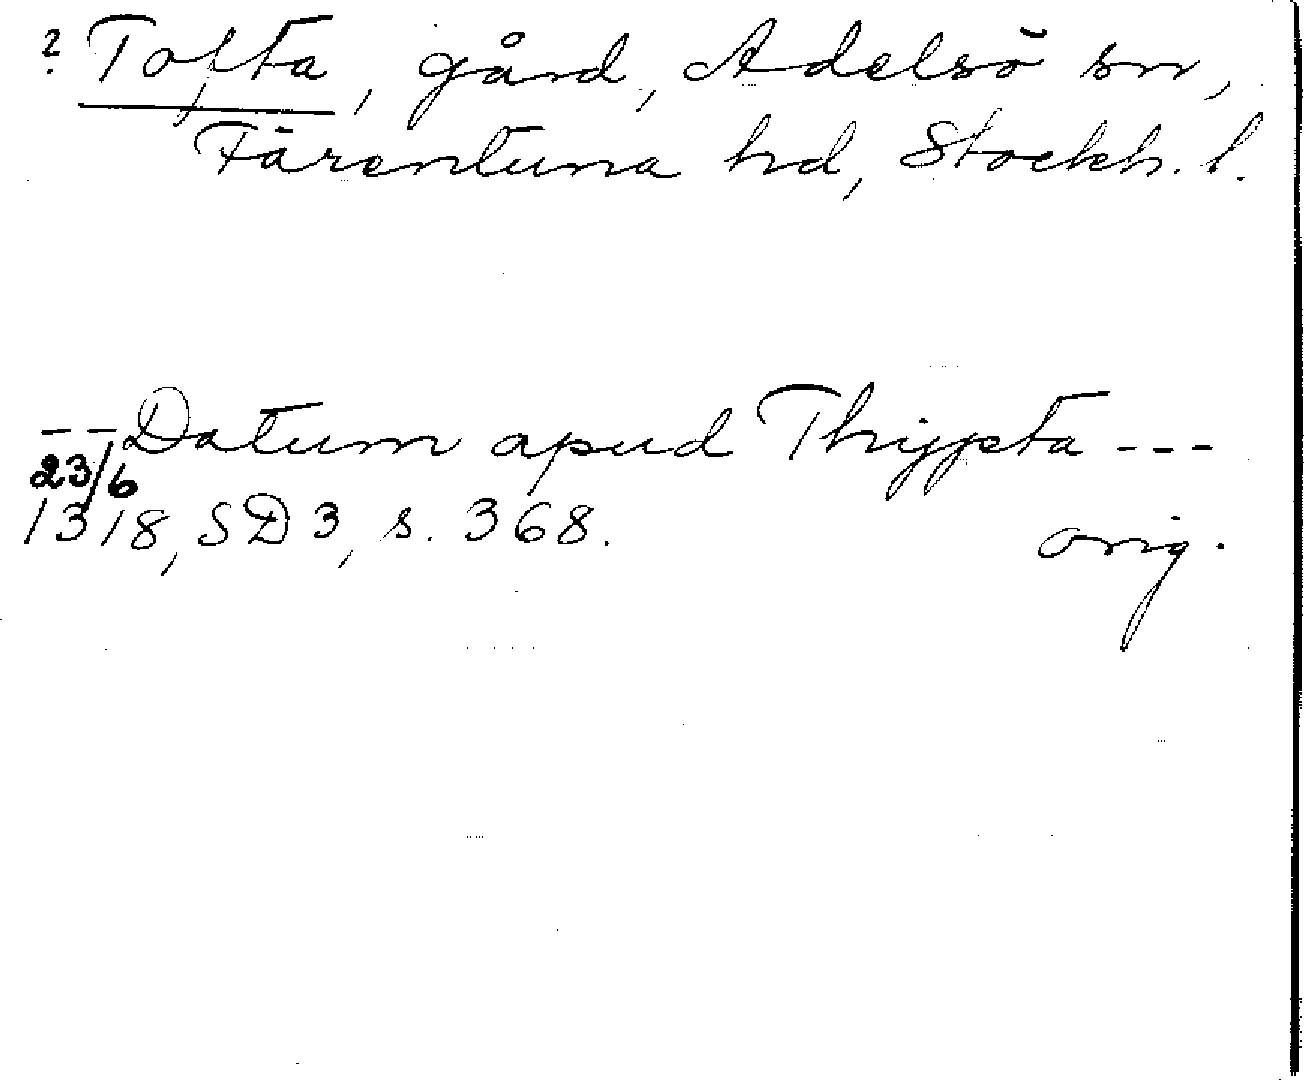 ? Tofta, gård, Adelsö sn,
Färentuna hd, Stockh. l.
-- Datum apud Thijpta ---
23/6
1318, SD 3, s. 368.
orig.